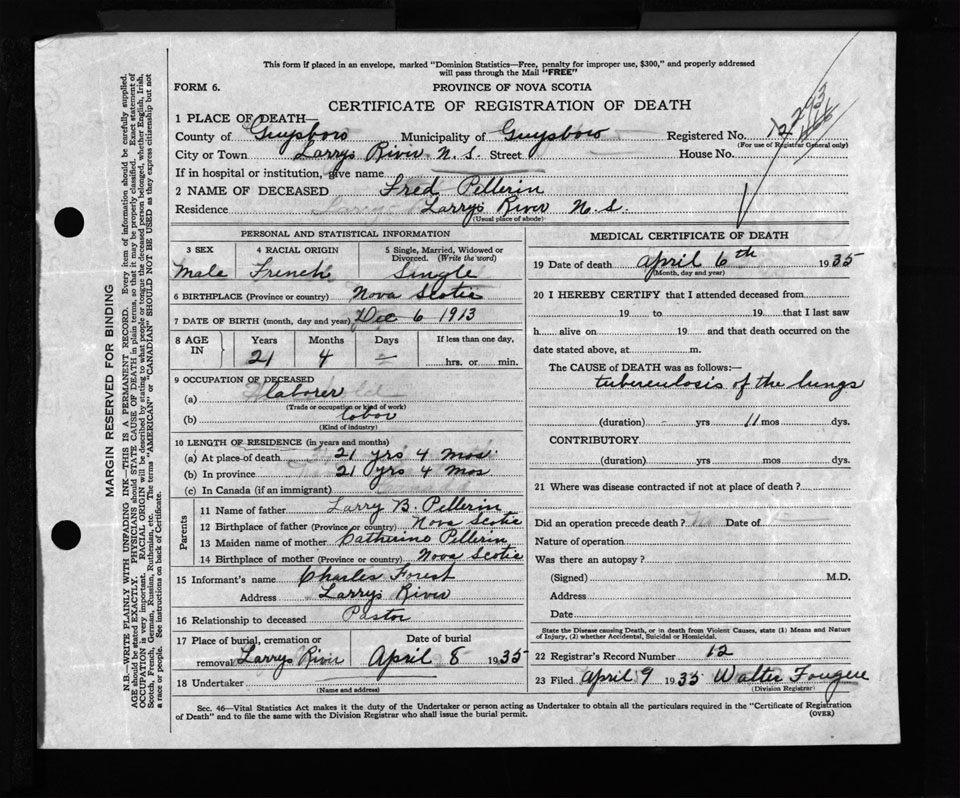 This form if placed in an envelope, marked "Dominion Statistics—Free, penalty for improper use, $300," and properly addressed
will pass through the Mail "FREE"
FORM 6.
PROVINCE OF NOVA SCOTIA
CERTIFICATE OF REGISTRATION OF DEATH
1 PLACE OF DEATH—
County of Guysboro Municipality of Guysboro Registered No.
(For use of Registrar General only)
City or Town Larrys River N. S. Street House No.
If in hospital or institution, give name
2 NAME OF DECEASED Fred Pellerin
Residence Larrys River N.S.
(Usual place of abode)
PERSONAL AND STATISTICAL INFORMATION
3 SEX 4 RACIAL ORIGIN 5 Single, Married, Widowed or
Divorced. (Write the word)
Male French Single
6 BIRTHPLACE (Province or country) Nova Scotia
7 DATE OF BIRTH (month, day and year) Dec 6 1913
8 AGE IN Years Months Days If less than one day,
21 4 – hrs. or min.
9 OCCUPATION OF DECEASED
(a) laborer
(Trade or occupation or kind of work)
(b) labor
(Kind of industry)
10 LENGTH OF RESIDENCE (in years and months)
(a) At place of death 21 yrs 4 mos.
(b) In province 21 yrs 4 mos
(c) In Canada (if an immigrant)
Parents
11 Name of father Larry B. Pellerin
12 Birthplace of father (Province or country) Nova Scotia
13 Maiden name of mother Catherine Pellerin
14 Birthplace of mother (Province or country) Nova Scotia
15 Informant's name Charles Forest
Address Larrys River
16 Relationship to deceased Pastor
17 Place of burial, cremation or Date of burial
removal Larrys River April 8 1935
18 Undertaker
(Name and address)
MEDICAL CERTIFICATE OF DEATH
19 Date of death April 6th 1935
(Month, day and year)
20 I HEREBY CERTIFY that I attended deceased from
19 to 19 that I last saw
h alive on 19 and that death occurred on the
date stated above, at m.
The CAUSE of DEATH was as follows:—
tuberculosis of the lungs
(duration) - yrs 11 mos dys.
CONTRIBUTORY
(duration) yrs mos dys.
21 Where was disease contracted if not at place of death?
Did an operation precede death? Date of
Nature of operation
Was there an autopsy?
(Signed) M.D.
Address
Date
State the Disease causing Death, or in death from Violent Causes, state (1) Means and Nature
of Injury, (2) whether Accidental, Suicidal or Homicidal.
22 Registrar's Record Number 12
23 Filed April 9 1935 Walter Fougere
(Division Registrar)
Sec. 46—Vital Statistics Act makes it the duty of the Undertaker or person acting as Undertaker to obtain all the particulars required in the "Certificate of Registration
of Death" and to file the same with the Division Registrar who shall issue the burial permit.
(OVER)
MARGIN RESERVED FOR BINDING
N.B.—WRITE PLAINLY WITH UNFADING INK—THIS IS A PERMANENT RECORD. Every item of information should be carefully supplied.
AGE should be stated EXACTLY. PHYSICIANS should STATE CAUSE OF DEATH in plain terms, so that it may be properly classified. Exact statement of
OCCUPATION is very important. RACIAL ORIGIN will be described by stating to what people or tongue the deceased person belonged, whether English, Irish,
Scotch, French, German, Russian, Ruthenian, etc. The terms "AMERICAN" or "CANADIAN" SHOULD NOT BE USED as they express citizenship but not
a race or people. See instructions on back of Certificate.